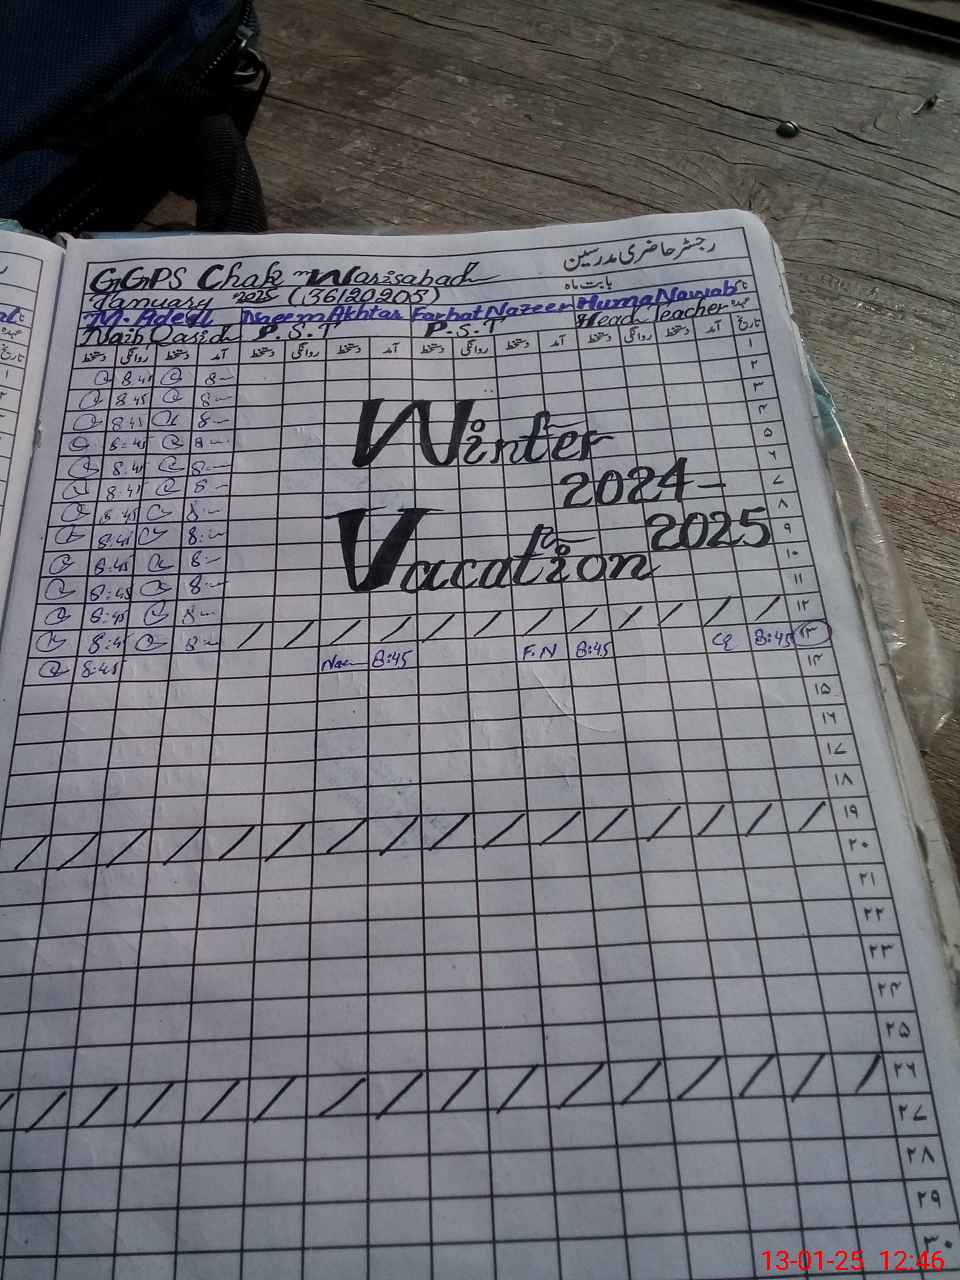 رجسٹر حاضری مدرسین
بابت ماہ
GGPS Chak Warisabad
January 2025 (36120205)
M. Adeel Naeem Akhtar Farhat Nazeer Huma Nawab
Naib Qasid P.S.T P.S.T Head Teacher
دستخط روانگی دستخط آمد دستخط روانگی دستخط آمد دستخط روانگی دستخط آمد دستخط روانگی دستخط آمد تاریخ
۱
8:45 8 ۲
8:45 8 ۳
8:45 8 ۴
8:45 8 ۵
8:45 8 ۶
8:45 8 ۷
8:45 8 ۸
8:45 8 ۹
8:45 8 ۱۰
8:45 8 ۱۱
8:45 8 ۱۲
8:45 8 ۱۳
Winter
2024-
Vacation 2025
8:45 8:45 F.N 8:45 8:45
۱۴
۱۵
۱۶
۱۷
۱۸
۱۹
۲۰
۲۱
۲۲
۲۳
۲۴
۲۵
۲۶
۲۷
۲۸
۲۹
۳۰
13-01-25 12:46